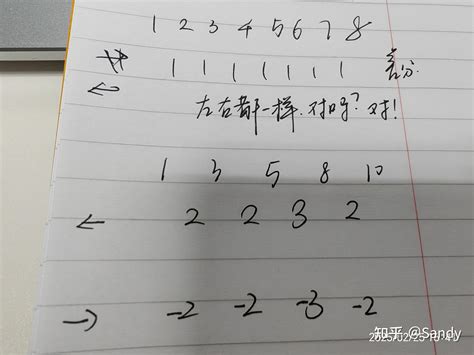 1 2 3 4 5 6 7 8
1 1 1 1 1 1 1 差分
←
左右都一样.对吗?对!
1 3 5 8 10
← 2 2 3 2
→ -2 -2 -3 -2
知乎 @Sandy
2025/02/25